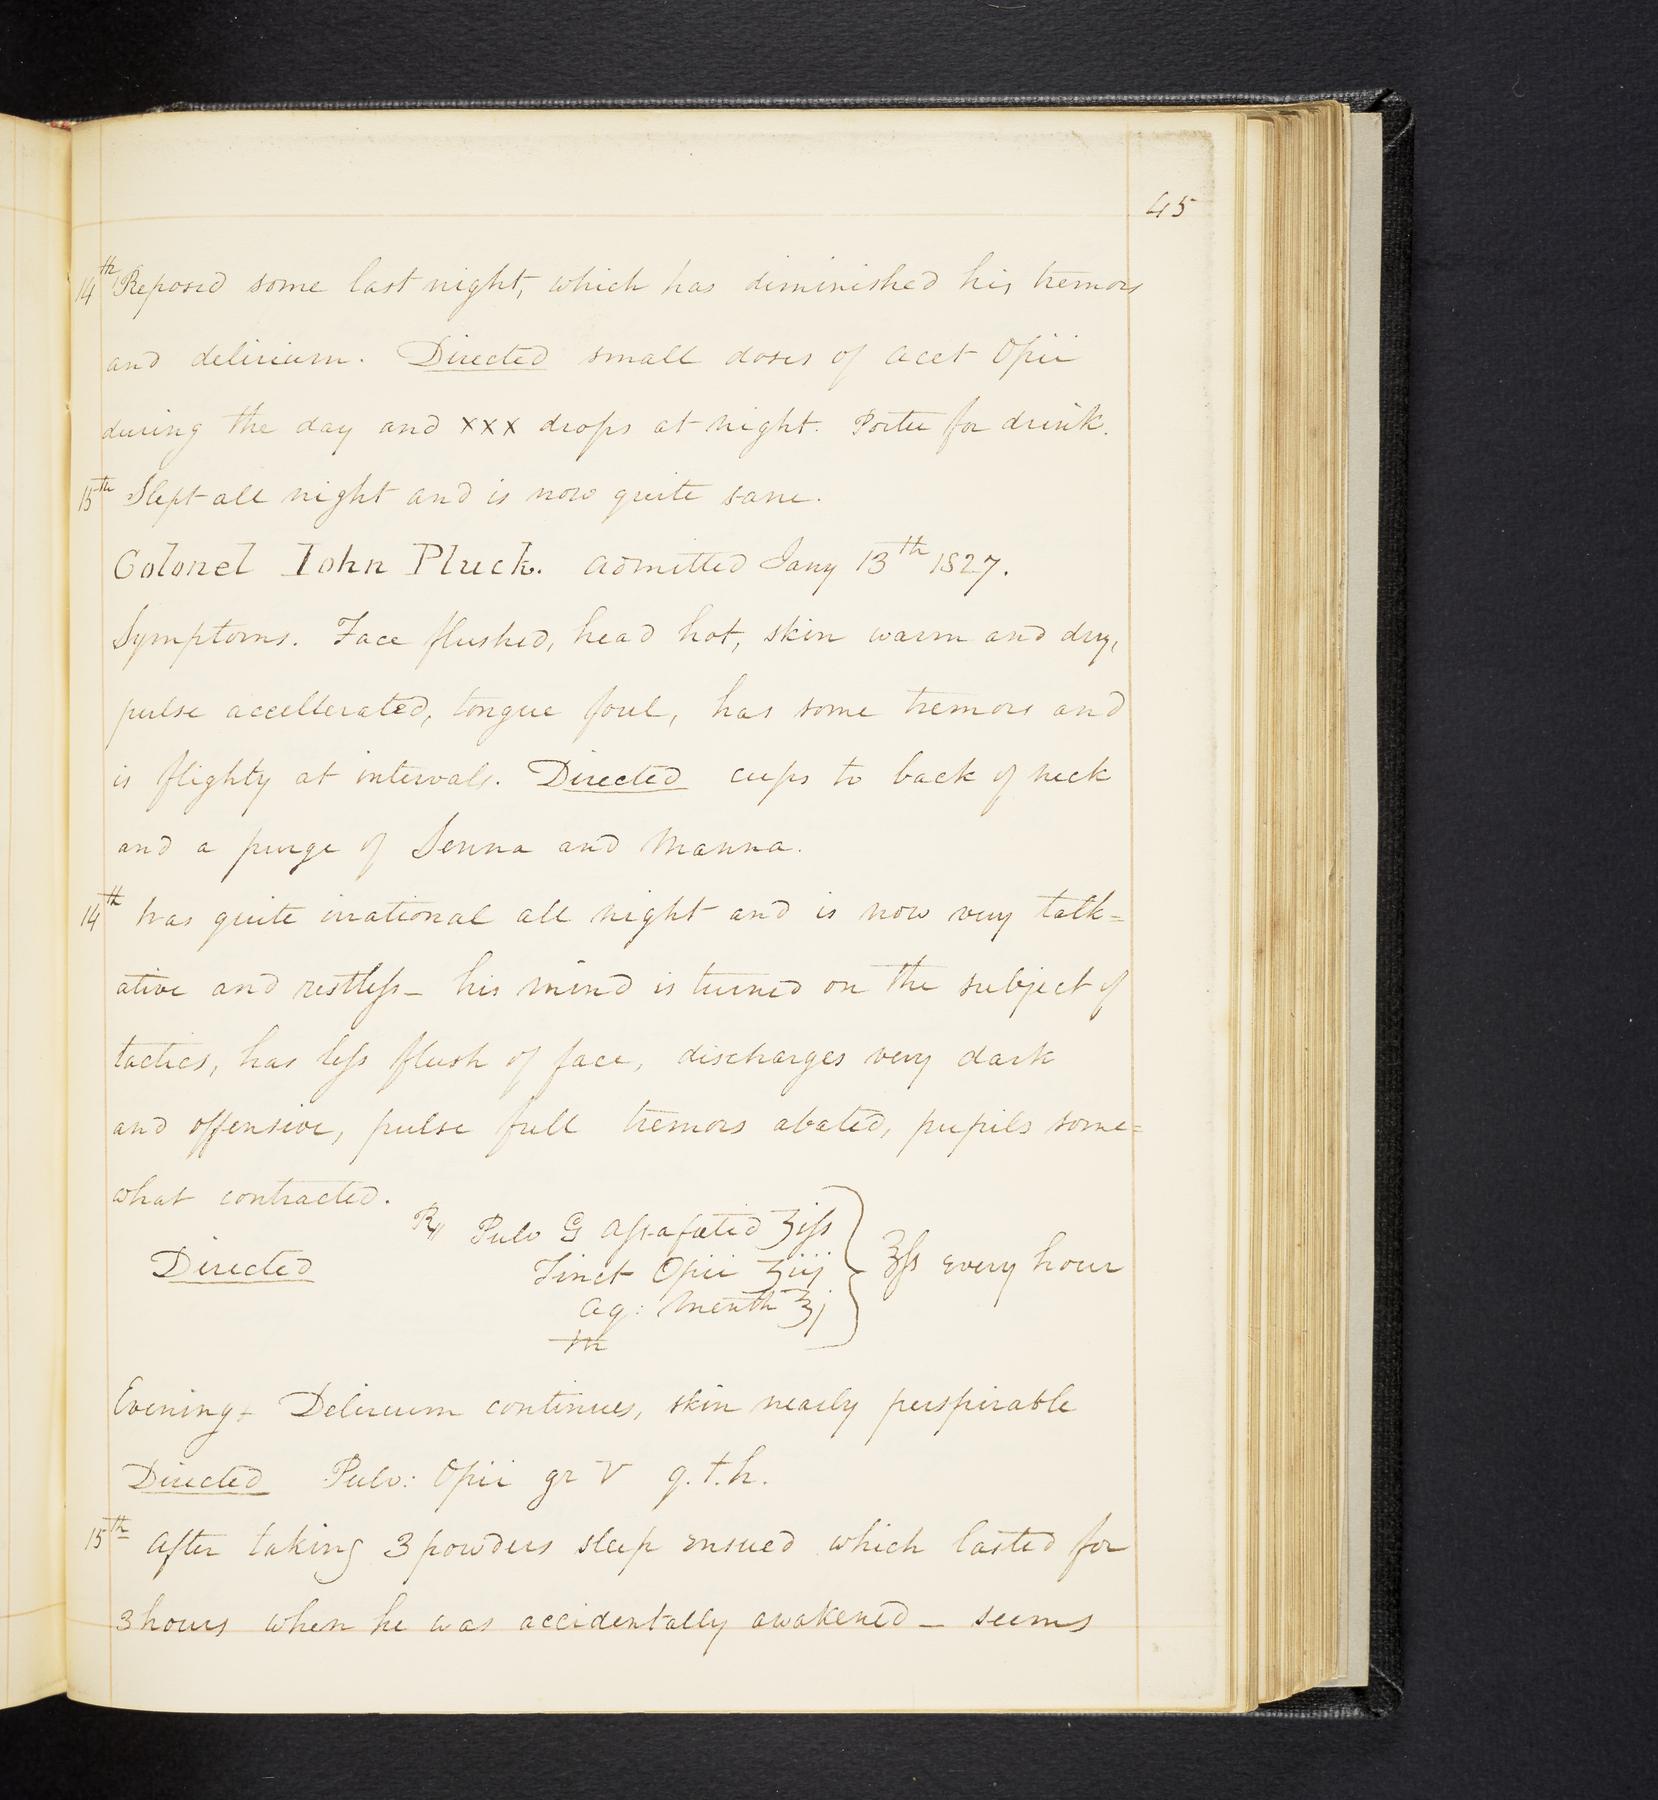 45
14th Reposed some last night, which has diminished his tremors
and delirium. Directed small doses of Acet Opii
during the day and xxx drops at night. Porter for drink.
15th Slept all night and is now quite sane.
Colonel John Pluck. Admitted Jany 13th 1827.
Symptoms. Face flushed, head hot, skin warm and dry,
pulse accellerated, tongue foul, has some tremors and
is flighty at intervals. Directed cups to back of neck
and a purge of Senna and Manna.
14th Was quite irrational all night and is now very talk=
ative and restless_ his mind is turned on the subject of
tactics, has less flush of face, discharges very dark
and offensive, pulse full tremors abated, pupils some=
what contracted.
℞ Pulv G Assafœtid ʒiss
Directed Tinct Opii ʒiij ℥ss every hour
Aq: Menth ℥j
M
Evening+ Delirium continues, skin nearly perspirable
Directed Pulv: Opii gr V q.t.h.
15th After taking 3 powders sleep ensued which lasted for
3 hours when he was accidentally awakened _ seems